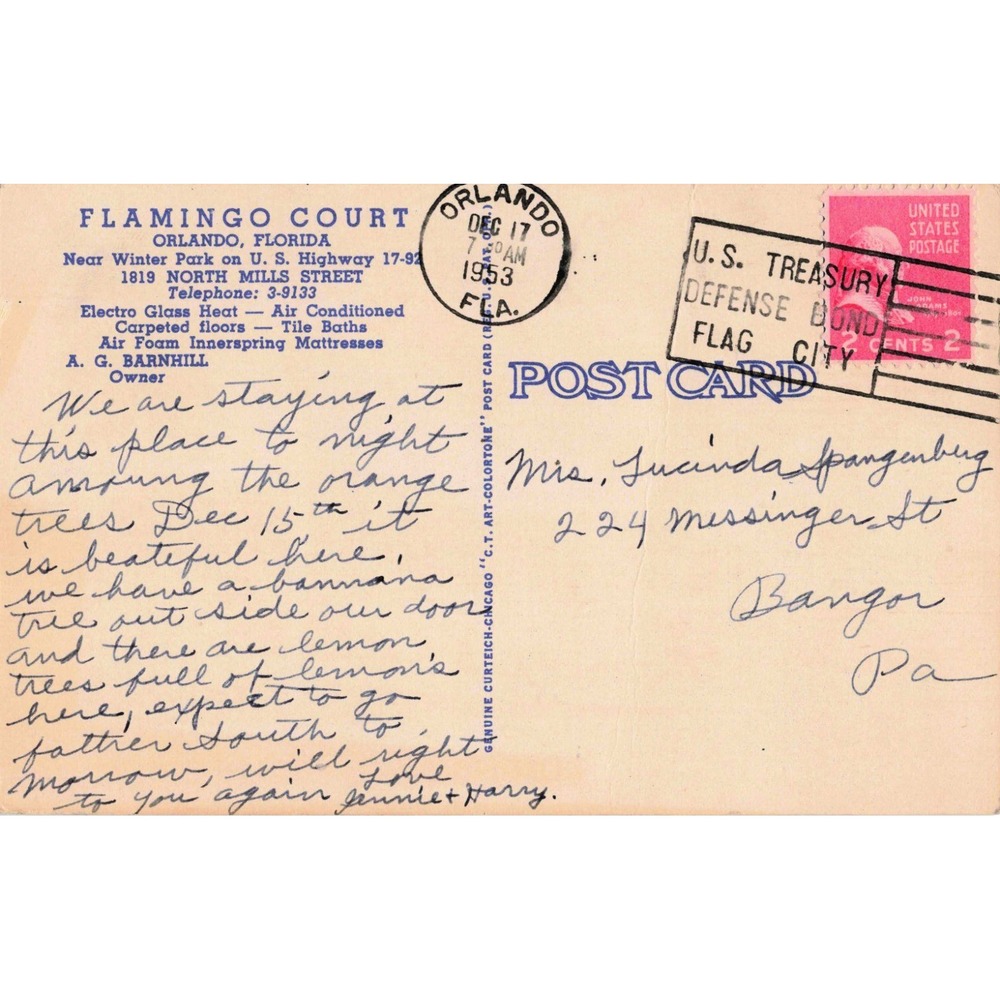 FLAMINGO COURT
ORLANDO, FLORIDA
Near Winter Park on U. S. Highway 17-92
1819 NORTH MILLS STREET
Telephone: 3-9133
Electro Glass Heat — Air Conditioned
Carpeted floors — Tile Baths
Air Foam Innerspring Mattresses
A. G. BARNHILL
Owner
We are staying at
this place to night
amoung the orange
trees Dec 15th it
is beateful here.
we have a bannana
tree out side our door
and there are lemon
trees full of lemon's
here, expect to go
fatther South to
morrow, will right
to you again Love
Jennie + Harry.
GENUINE CURTEICH-CHICAGO "C.T. ART-COLORTONE" POST CARD (REG. U.S. PAT. OFF.)
ORLANDO
DEC 17
7 AM
1953
FLA.
U.S. TREASURY
DEFENSE BOND
FLAG CITY
UNITED
STATES
POSTAGE
JOHN
ADAMS
2 CENTS 2
POST CARD
Mrs. Lucinda Spangenburg
224 Messinger St
Bangor
Pa